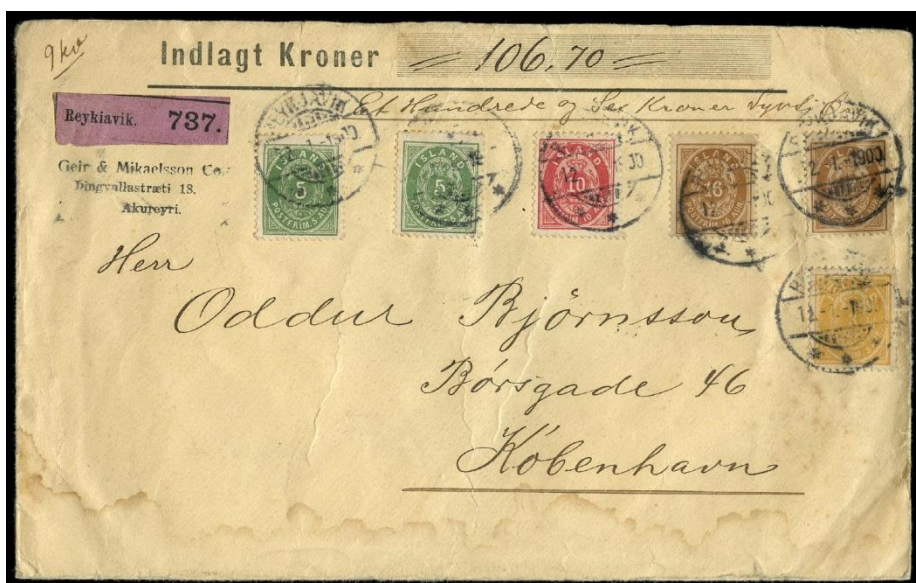 9 kv
Indlagt Kroner = 106,70 =
Et Hundrede og Sex Kroner
Reykiavik. 737.
Geir & Mikaelsson Co.
Þingvallastræti 18.
Akureyri.
REYKJAVIK
ÍSLAND
5
POSTFRIM. 5 AUR.
ÍSLAND
5
POSTFRIM.
ÍSLAND
10
12.
ÍSLAND
16
12.
REYKJAVIK
12.-1.-1900
Herr
Oddur Björnsson
Börsgade 46
Köbenhavn